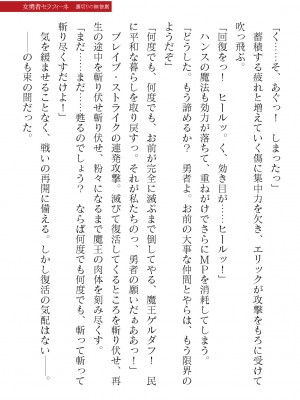 女勇者セラフィーネ 裏切りの触放戯
「く……そ、あぐっ！　しまった～」
　蓄積する疲れと増えていく傷に集中力を欠き、エリックが攻撃をもろに受けて
吹っ飛ぶ。
「回復をっ！　ヒールッ。く、効き目が……ヒールッ！」
　ハンスの魔法も効力が落ちて、重ねがけでさらにMPを消耗してしまう。
「どうした。もう諦めるか？　勇者よ。お前の大事な仲間とやらは、もう限界の
ようだぞ」
「何度でも、何度でも、お前が完全に滅ぶまで倒してやる、魔王ゲルダフ！　民
に平和な暮らしを取り戻すっ。それが私たちのっ、勇者の願いだぁああっ！」
　ブレイブ・ストライクの連発攻撃。滅びて復活してくるところを斬り伏せ、再
生の途中を斬り伏せ斬り伏せ、粉々になるまで魔王の肉体を刻み尽くす。
「まだ……まだ……甦るのでしょう？　ならば何度でも何度でも、斬って斬って
斬り尽くすだけよ！」
　気を緩ませることなく、戦いの再開に備える。しかし復活の気配はない――。
　――のも束の間だった。